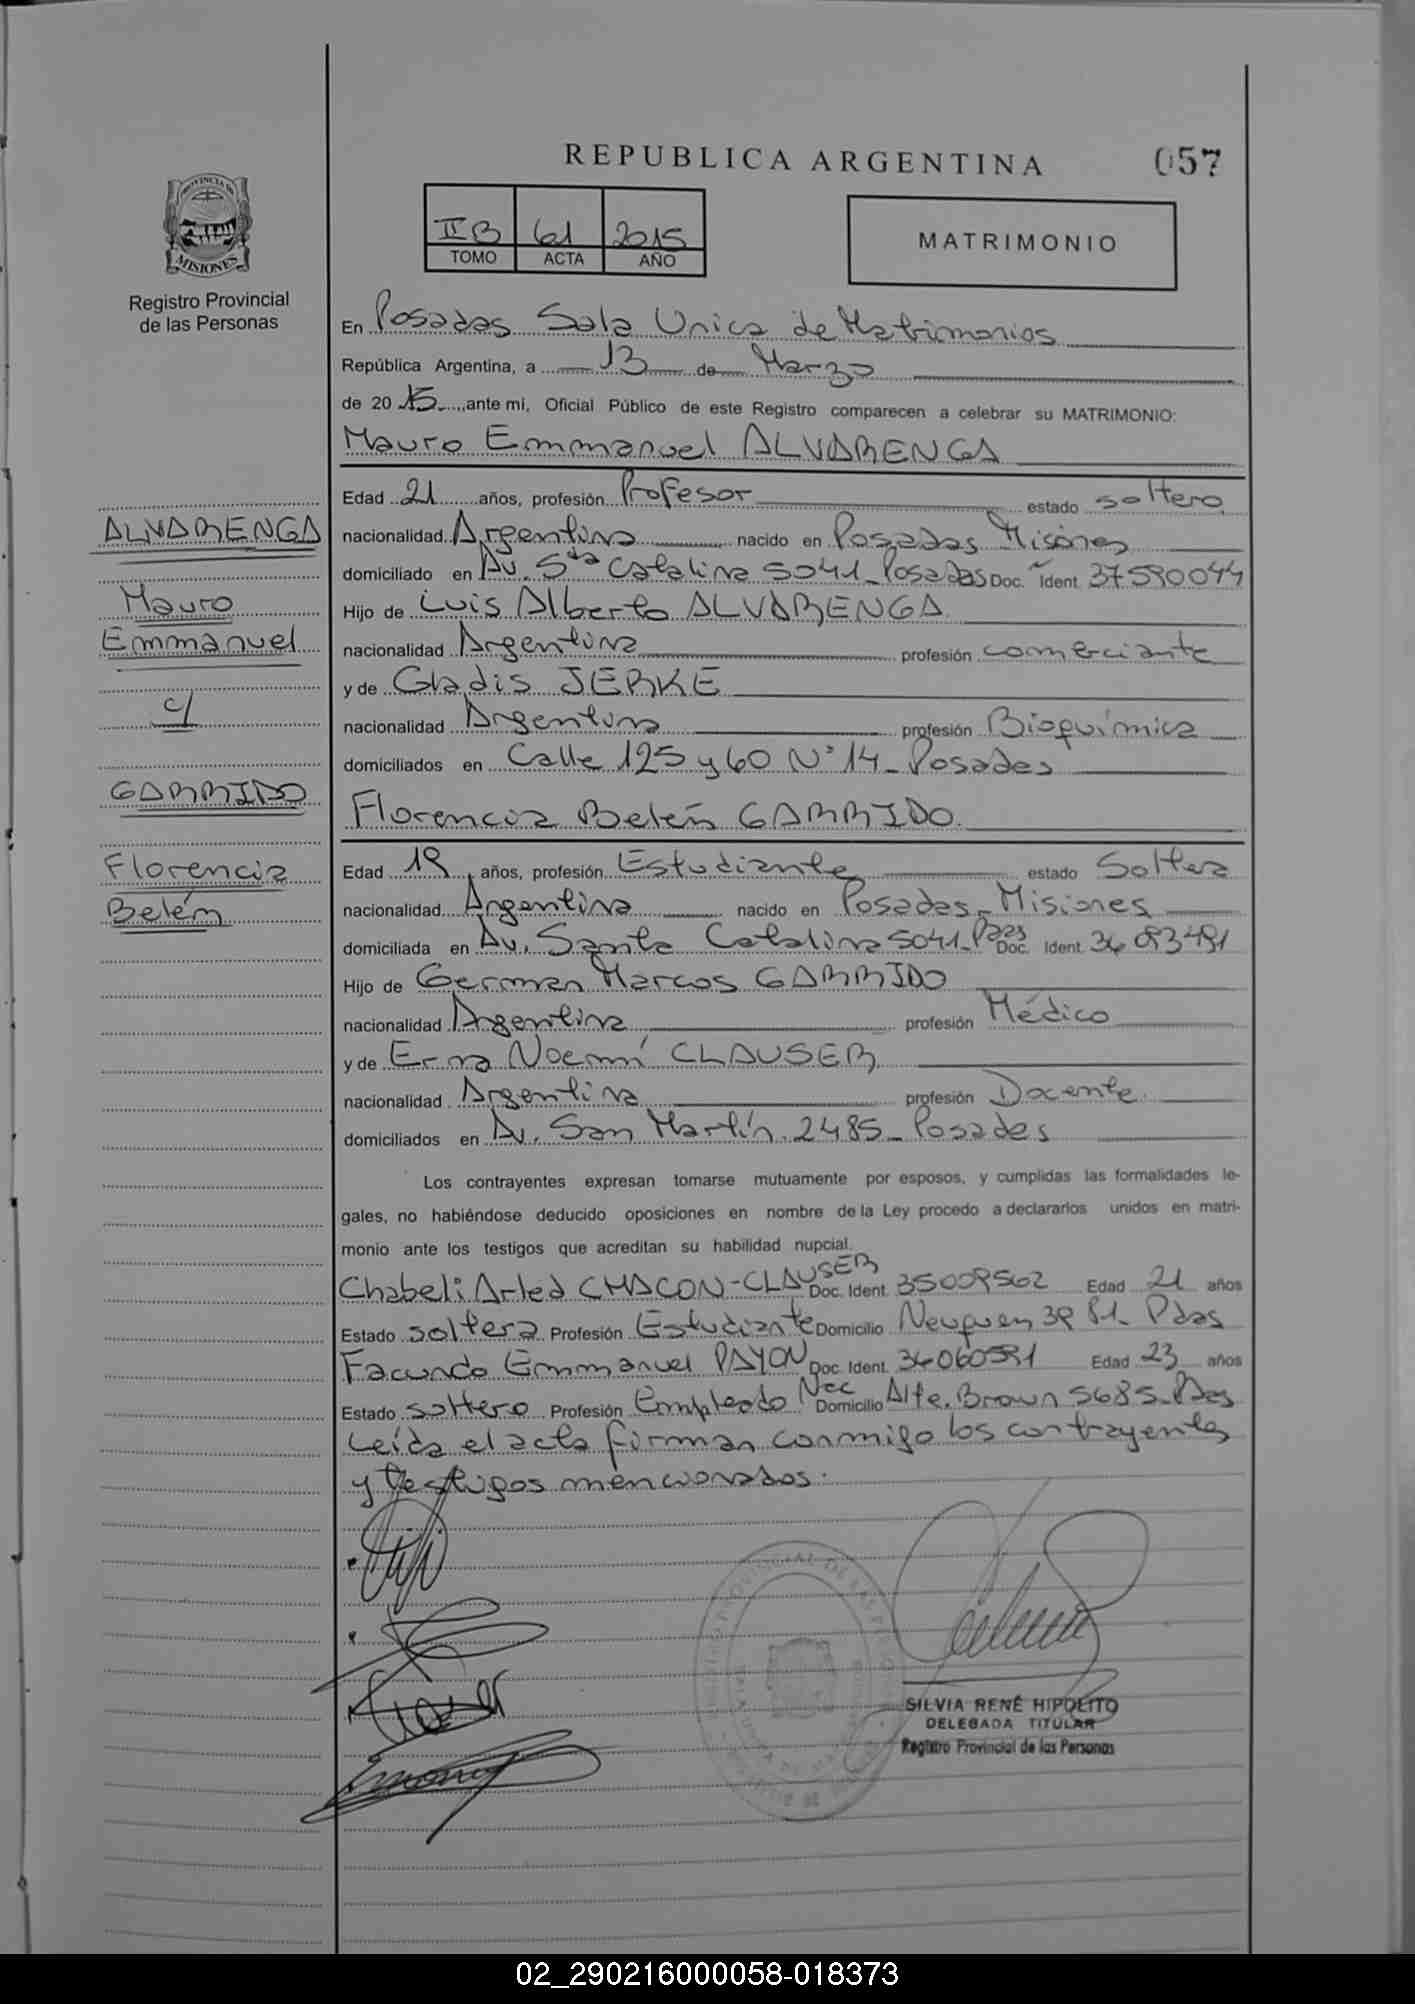 REPUBLICA ARGENTINA
057
PROVINCIA DE
MISIONES
Registro Provincial
de las Personas
II B 61 2015
TOMO ACTA AÑO
MATRIMONIO
En Posadas Sala Unica de Matrimonios
República Argentina, a 13 de Marzo
de 20 15 ante mi, Oficial Público de este Registro comparecen a celebrar su MATRIMONIO:
Mauro Emmanuel ALVARENGA
Edad 21 años, profesión Profesor estado soltero
nacionalidad Argentina nacido en Posadas Misiones
domiciliado en Av. Sta Catalina 5041 - Posadas Doc. Ident. 37590044
Hijo de Luis Alberto ALVARENGA
nacionalidad Argentina profesión comerciante
y de Gladis JERKE
nacionalidad Argentina profesión Bioquímica
domiciliados en Calle 125 y 60 N° 14 - Posadas
Florencia Belén GARRIDO
Edad 19 años, profesión Estudiante estado Soltera
nacionalidad Argentina nacido en Posadas - Misiones
domiciliada en Av. Santa Catalina 5041 - Pdas Doc. Ident.
Hijo de German Marcos GARRIDO
nacionalidad Argentina profesión Médico
y de Erna Noemí CLAUSER
nacionalidad Argentina profesión Docente
domiciliados en Av. San Martín 2485 - Posadas
Los contrayentes expresan tomarse mutuamente por esposos, y cumplidas las formalidades le-
gales, no habiéndose deducido oposiciones en nombre de la Ley procedo a declararlos unidos en matri-
monio ante los testigos que acreditan su habilidad nupcial.
Chabeli Arled CHACON-CLAUSER Doc. Ident. 35009562 Edad 21 años
Estado soltera Profesión Estudiante Domicilio Neuquen 3981 - Pdas
Facundo Emmanuel PAYON Doc. Ident. Edad 23 años
Estado soltero Profesión Empleado Domicilio Alte. Brown 5685 - Pdas
Leída el acta firman conmigo los contrayentes
y testigos mencionados.
ALVARENGA
Mauro
Emmanuel
c/
GARRIDO
Florencia
Belén
SILVIA RENÉ HIPOLITO
DELEGADA TITULAR
Registro Provincial de las Personas
02_290216000058-018373